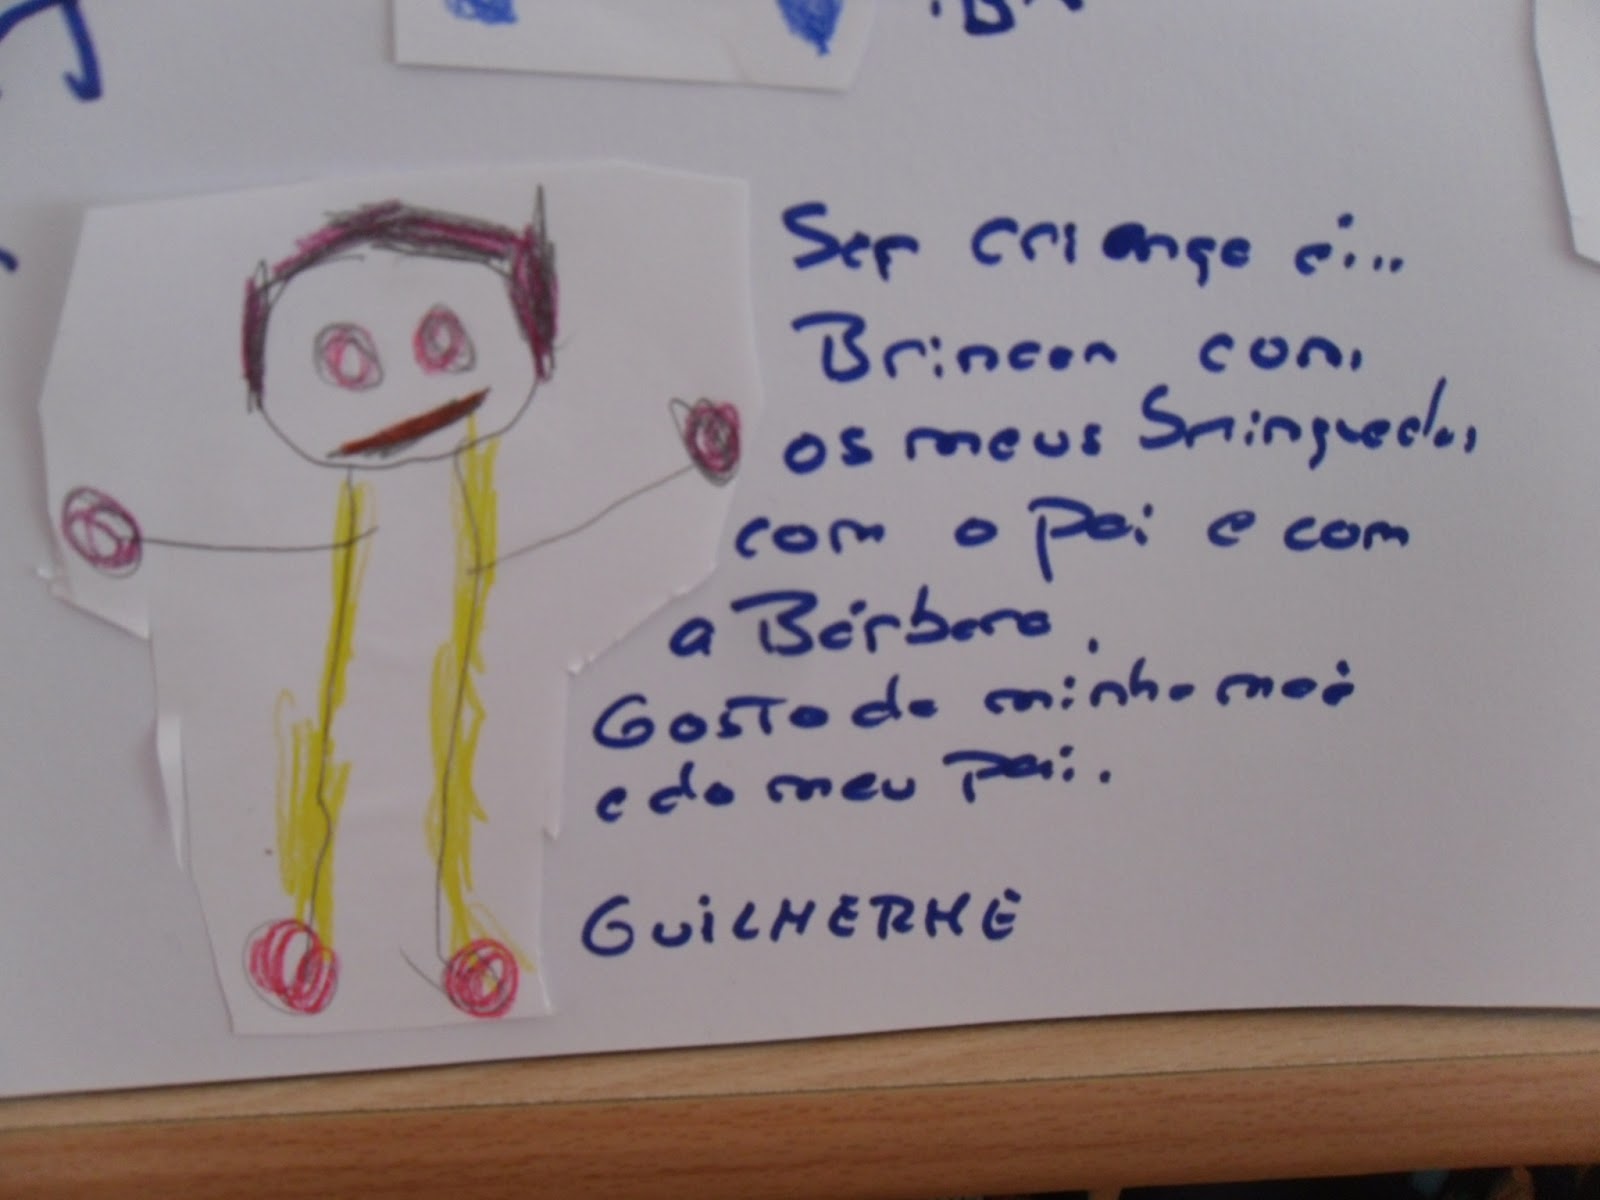 Ser criança é...
Brincar com
os meus brinquedos,
com o pai e com
a Bárbara.
Gosto da minha mãe
e do meu pai.
GUILHERME